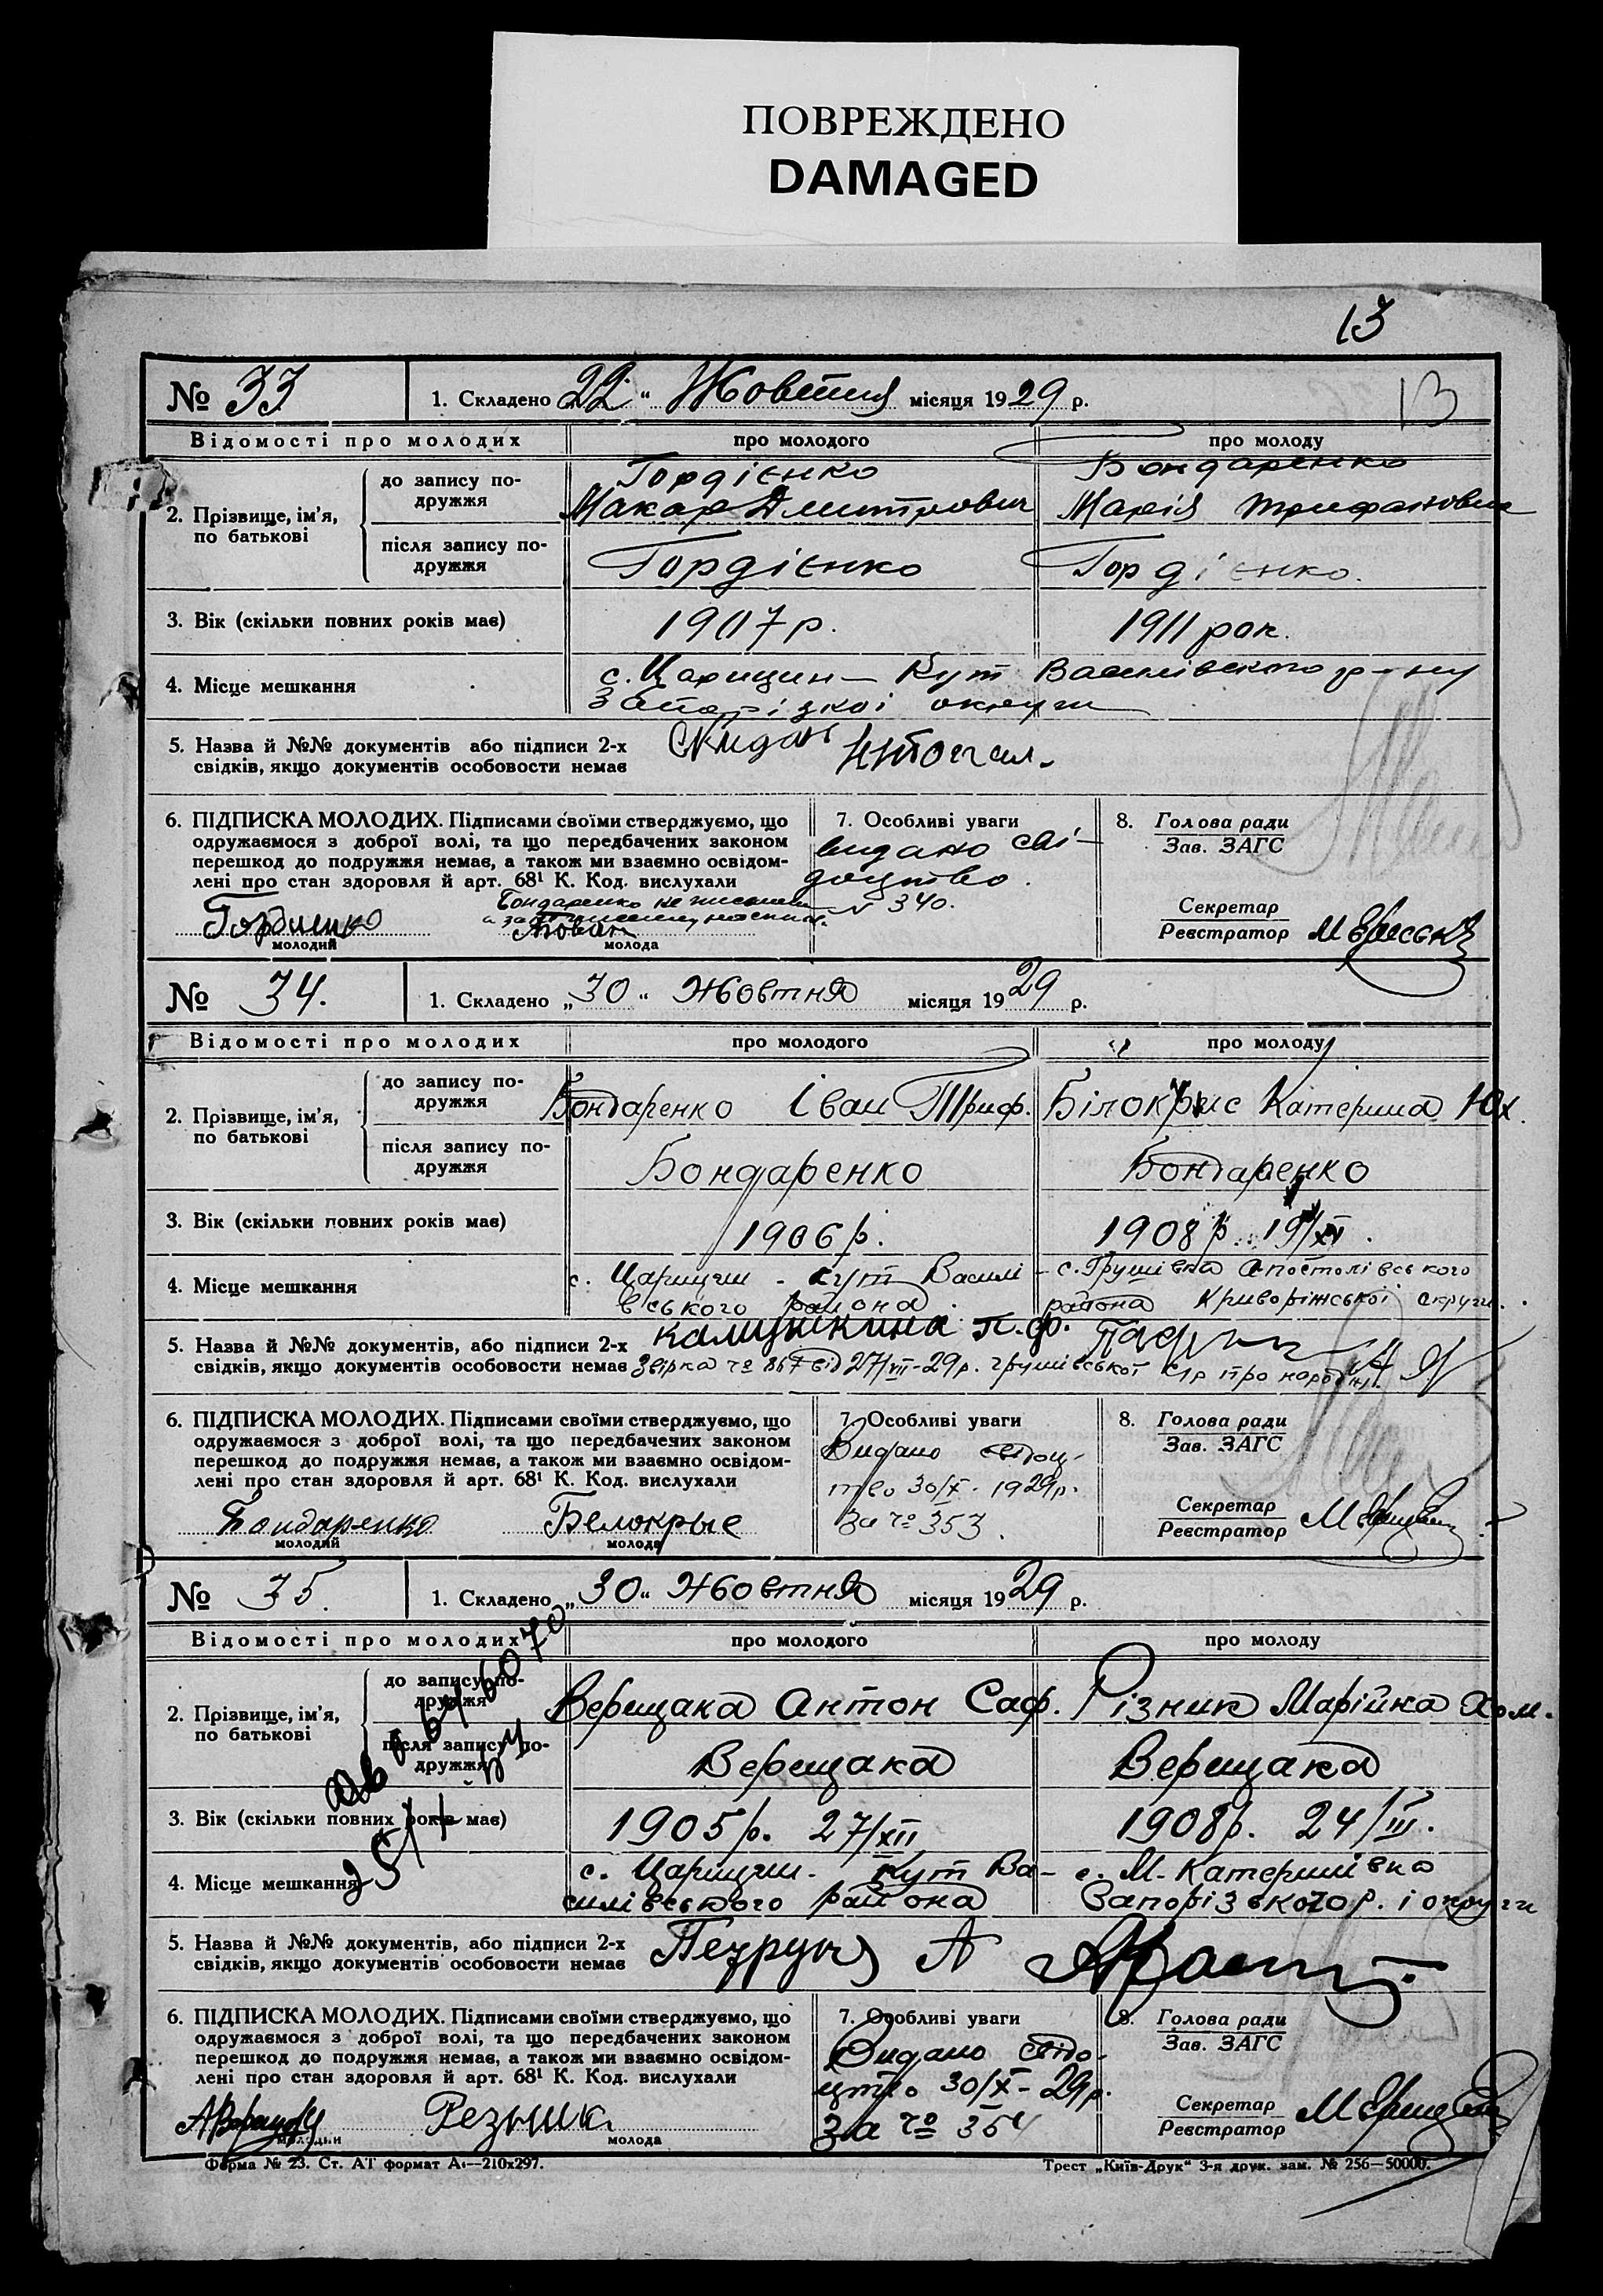 ПОВРЕЖДЕНО
DAMAGED
13
13
№ 33
1. Складено „22“ Жовтня місяця 1929 р.
Відомості про молодих
про молодого
про молоду
2. Прізвище, ім’я, по батькові
до запису подружжя
Гордієнко
Макар Дмитрович
Бондаренко
Марія Трифановна
після запису подружжя
Гордієнко
Гордієнко.
3. Вік (скільки повних років має)
1907 р.
1911 рок.
4. Місце мешкання
с. Царицин – Кут Василівського р-ну
Запорізкої округи
5. Назва й №№ документів або підписи 2-х
свідків, якщо документів особовости немає
6. ПІДПИСКА МОЛОДИХ. Підписами своїми стверджуємо, що
одружаємося з доброї волі, та що передбачених законом
перешкод до подружжя немає, а також ми взаємно освідом-
лені про стан здоровля й арт. 68¹ К. Код. вислухали
Гордиенко
молодий
Бондаренко не писменна
молода
7. Особливі уваги
видано сві-
доцтво.
№ 340.
8. Голова ради
Зав. ЗАГС
Секретар
Реєстратор
№ 34.
1. Складено „30“ Жовтня місяця 1929 р.
Відомості про молодих
про молодого
про молоду
2. Прізвище, ім’я, по батькові
до запису подружжя
Бондаренко Іван Триф.
Білокрис Катерина Юх.
після запису подружжя
Бондаренко
Бондаренко
3. Вік (скільки повних років має)
1906 р.
1908 р.
4. Місце мешкання
с. Царицин - Кут Василі-
вського района.
с. Грушівка Апостолівського
района Криворіжської округи.
5. Назва й №№ документів, або підписи 2-х
свідків, якщо документів особовости немає
калушкина п. ф.
27/VII-29 р. грушівської с/р про народж.
6. ПІДПИСКА МОЛОДИХ. Підписами своїми стверджуємо, що
одружаємося з доброї волі, та що передбачених законом
перешкод до подружжя немає, а також ми взаємно освідом-
лені про стан здоровля й арт. 68¹ К. Код. вислухали
Бондаренко
молодий
Белокрыс
молода
7. Особливі уваги
Видано свідоц-
тво 30/X - 1929 р.
За № 353.
8. Голова ради
Зав. ЗАГС
Секретар
Реєстратор
№ 35.
1. Складено „30“ Жовтня місяця 1929 р.
Відомості про молодих
про молодого
про молоду
2. Прізвище, ім’я, по батькові
до запису подружжя
Верещака Антон Саф.
Різник Марійка Хом.
після запису подружжя
Верещака
Верещака
3. Вік (скільки повних років має)
1905 р. 27/XII
1908 р. 24/III.
4. Місце мешкання
с. Царицин - Кут Ва-
силівського района
с. М-Катеринівка
Запорізького р. і округи
5. Назва й №№ документів, або підписи 2-х
свідків, якщо документів особовости немає
6. ПІДПИСКА МОЛОДИХ. Підписами своїми стверджуємо, що
одружаємося з доброї волі, та що передбачених законом
перешкод до подружжя немає, а також ми взаємно освідом-
лені про стан здоровля й арт. 68¹ К. Код. вислухали
молодий
Резник
молода
7. Особливі уваги
Видано свідо-
цтво 30/X - 29 р.
За № 354
8. Голова ради
Зав. ЗАГС
Секретар
Реєстратор
Форма № 23. Ст. АТ формат А₄—210х297.
Трест „Київ-Друк“ 3-я друк. зам. № 256—50000.